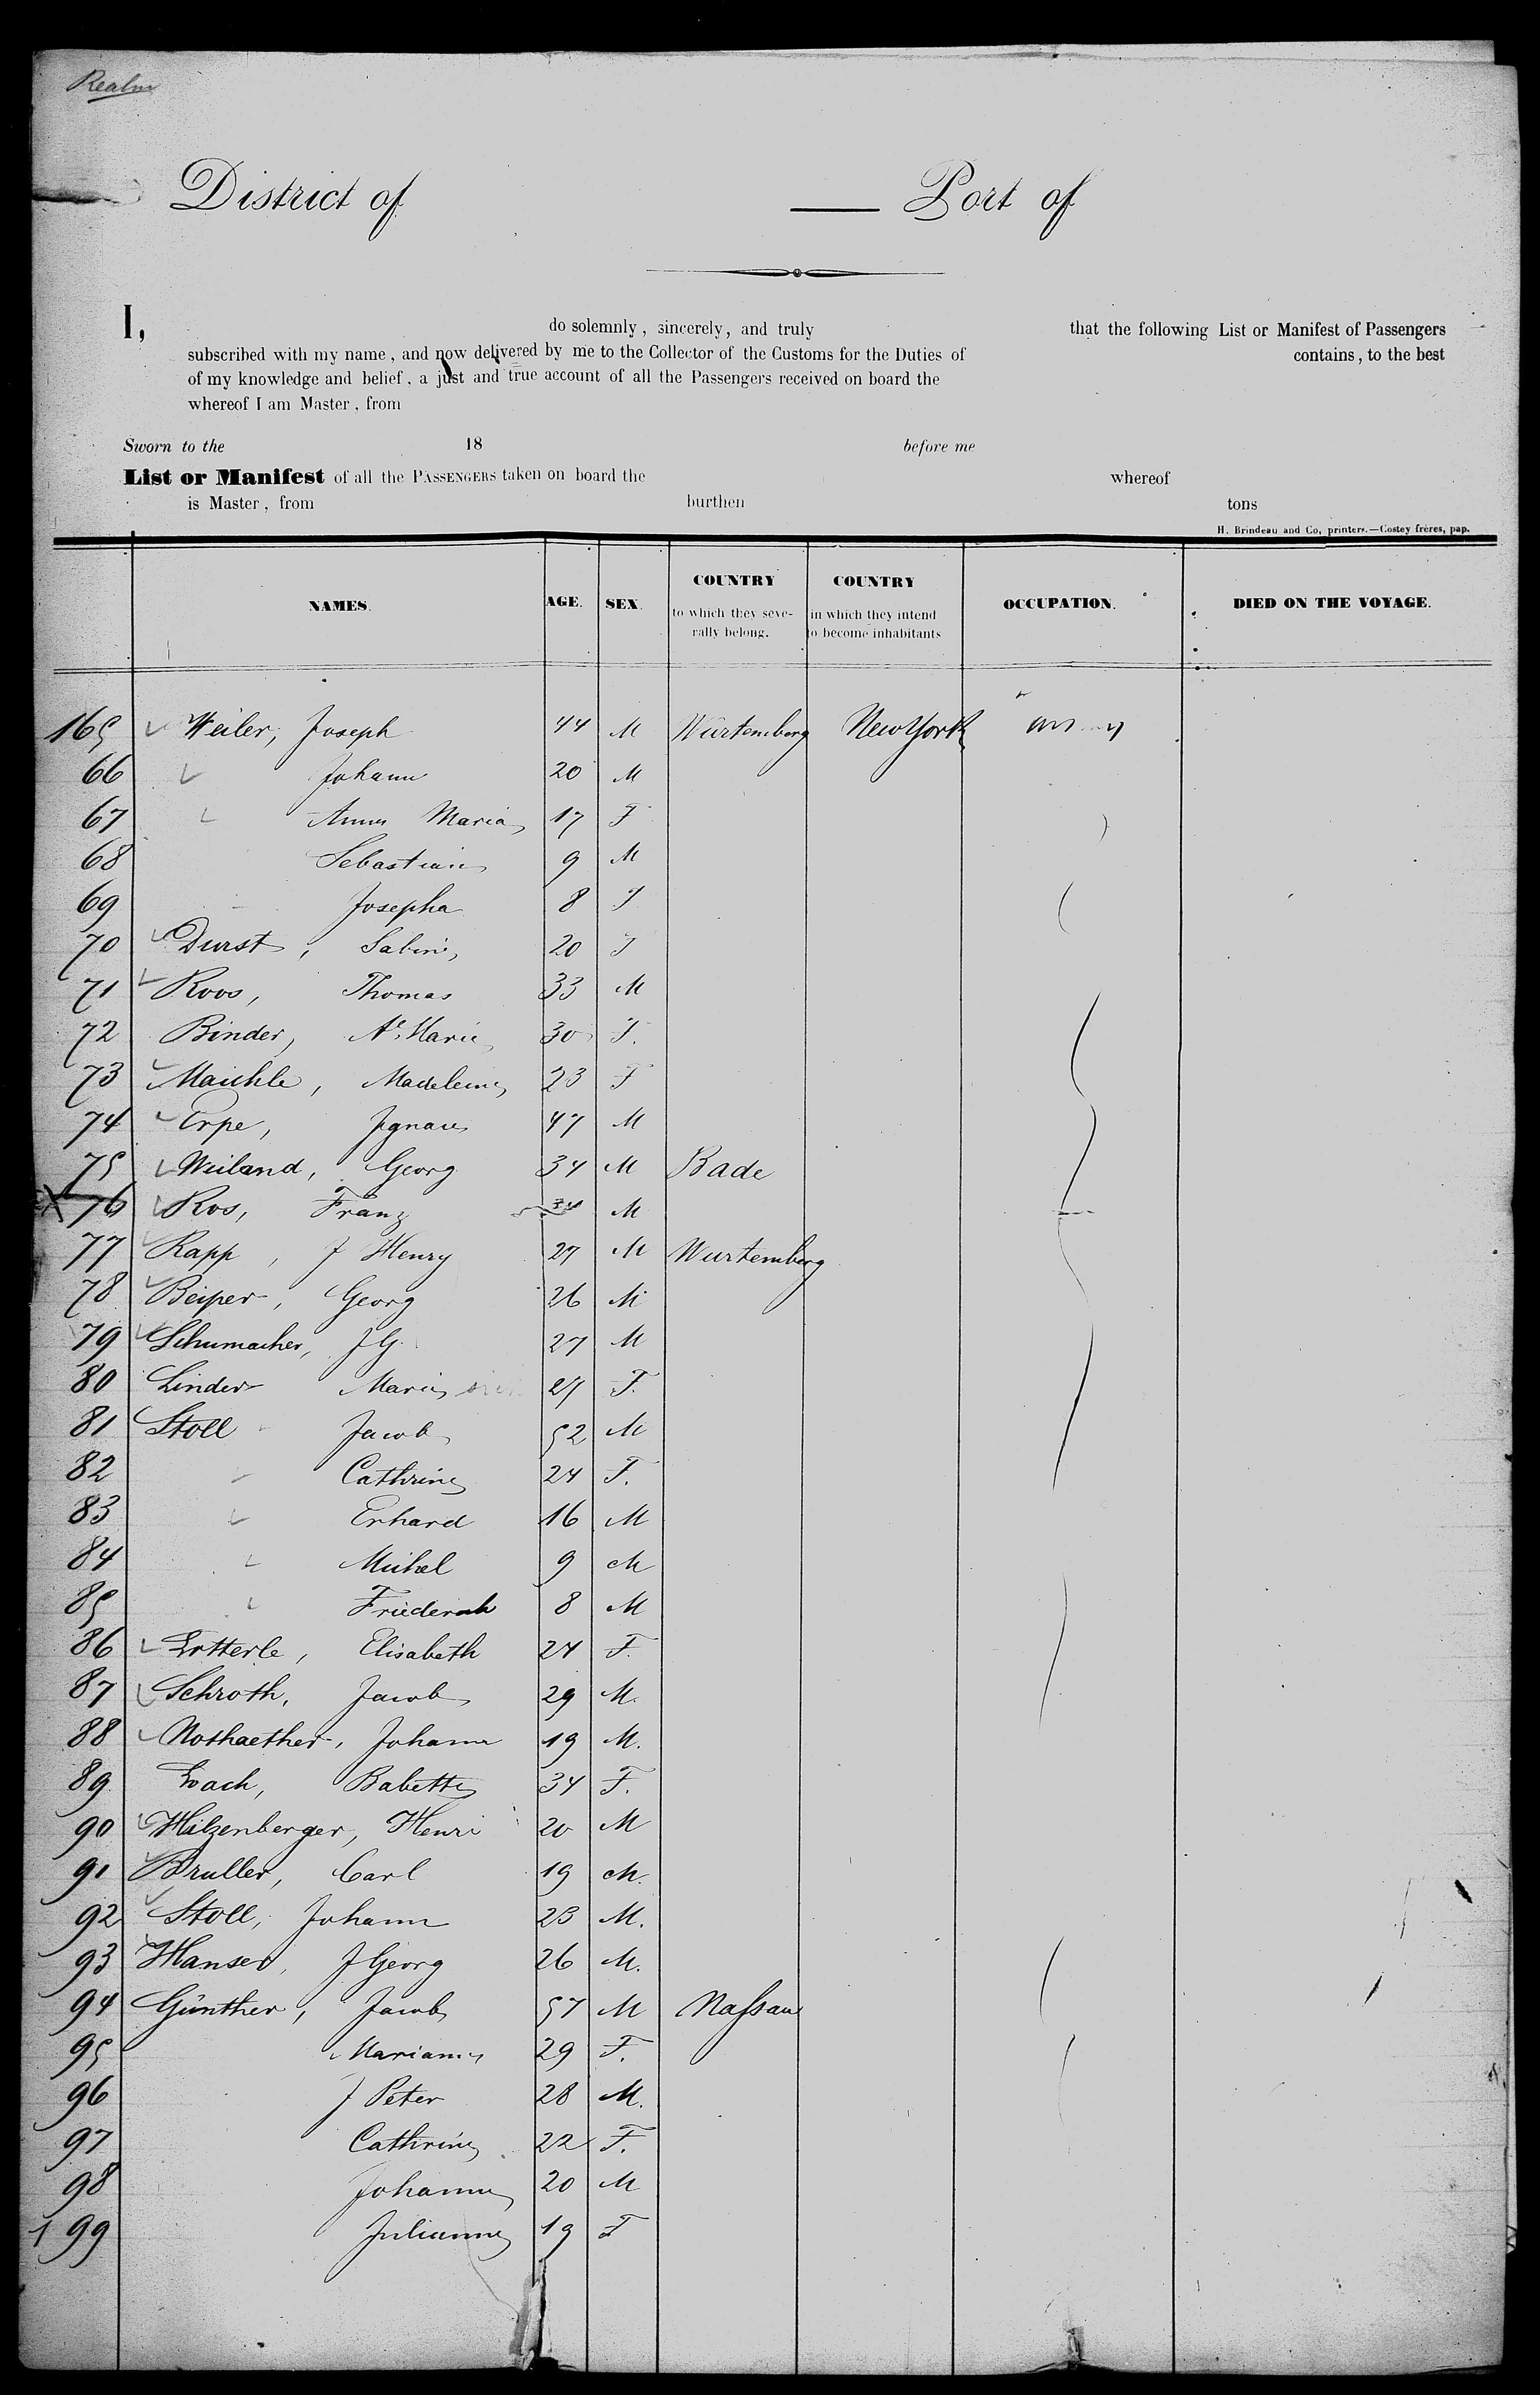 Realm
District of Port of
I, do solemnly, sincerely, and truly that the following List or Manifest of Passengers
subscribed with my name, and now delivered by me to the Collector of the Customs for the Duties of contains, to the best
of my knowledge and belief, a just and true account of all the Passengers received on board the
whereof I am Master, from
Sworn to the 18 before me
List or Manifest of all the PASSENGERS taken on board the whereof
is Master, from burthen tons
H. Brindeau and Co, printers.—Costey frères, pap.
NAMES. AGE. SEX. COUNTRY to which they severally belong. COUNTRY in which they intend to become inhabitants OCCUPATION. DIED ON THE VOYAGE.
165 Weiler, Joseph 44 M Würtemberg New York
66 Johann 20 M
67 Anna Maria 17 F
68 Sebastian 9 M
69 Josepha 8 F
70 Durst, Sabine 20 F
71 Roos, Thomas 33 M
72 Binder, Ae Marie 30 F.
73 Maichle, Madeleine 23 F
74 Erpe, Ignace 47 M
75 Weiland, Georg 34 M Bade
X 76 Ros, Franz 34 M
77 Rapp, J Henry 27 M Wurtemberg
78 Beiper, Georg 26 M
79 Schumacher, JG. 27 M
80 Linder Marie 27 F.
81 Stoll Jacob 52 M
82 Cathrine 24 F.
83 Erhard 16 M
84 Michel 9 M
85 Friederich 8 M
86 Lotterle, Elisabeth 24 F.
87 Schroth, Jacob 29 M.
88 Nothaether, Johann 19 M.
89 Loach, Babette 34 F.
90 Hilzenberger, Henri 20 M
91 Bruller, Carl 19 M.
92 Stoll, Johann 23 M.
93 Hanser, J Georg 26 M.
94 Günther, Jacob 57 M Nassau
95 Marianne 29 F.
96 J Peter 28 M.
97 Cathrine 22 F.
98 Johann 20 M
199 Julianne 19 F